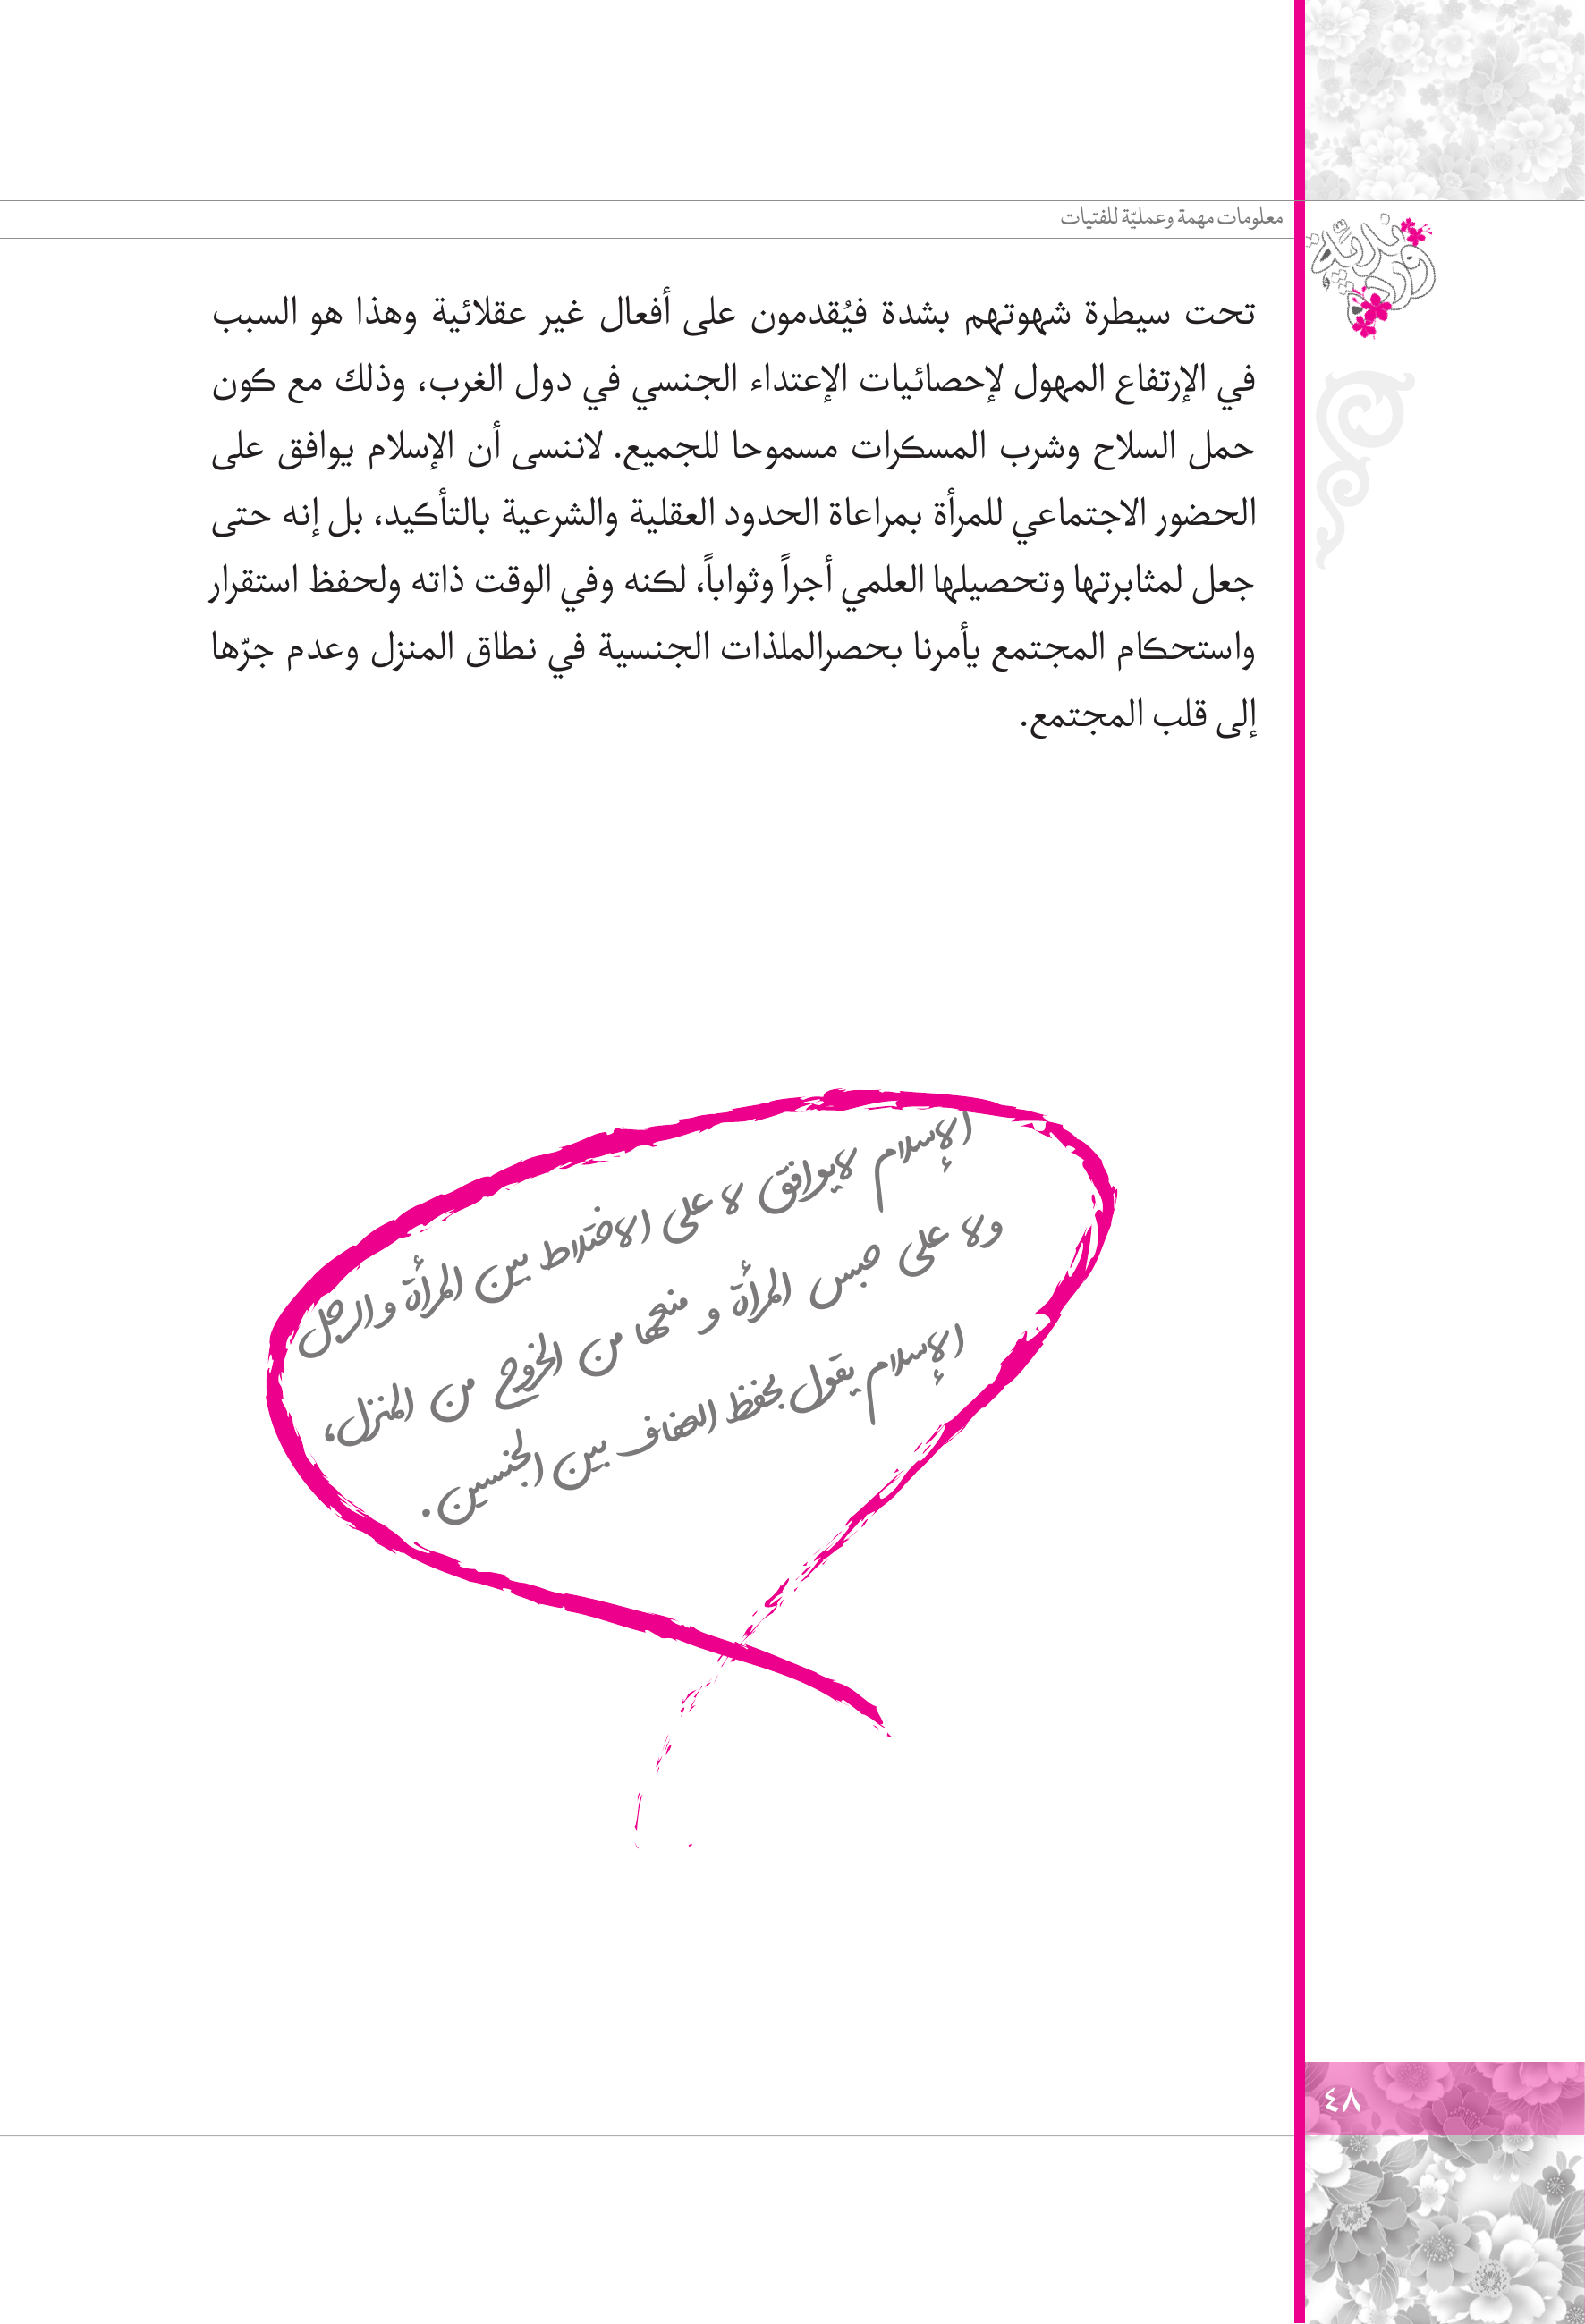 معلومات مهمة وعمليّة للفتيات
وردة ندائيّة
تحت سيطرة شهوتهم بشدة فيُقدمون على أفعال غير عقلائية وهذا هو السبب
في الإرتفاع المهول لإحصائيات الإعتداء الجنسي في دول الغرب، وذلك مع كون
حمل السلاح وشرب المسكرات مسموحا للجميع. لاننسى أن الإسلام يوافق على
الحضور الاجتماعي للمرأة بمراعاة الحدود العقلية والشرعية بالتأكيد، بل إنه حتى
جعل لمثابرتها وتحصيلها العلمي أجراً وثواباً، لكنه وفي الوقت ذاته ولحفظ استقرار
واستحكام المجتمع يأمرنا بحصرالملذات الجنسية في نطاق المنزل وعدم جرّها
إلى قلب المجتمع.
الإسلام لايوافق لا على الاختلاط بين المرأة والرجل
ولا على حبس المرأة و منعها من الخروج من المنزل،
الإسلام يقول بحفظ العفاف بين الجنسين.
٤٨